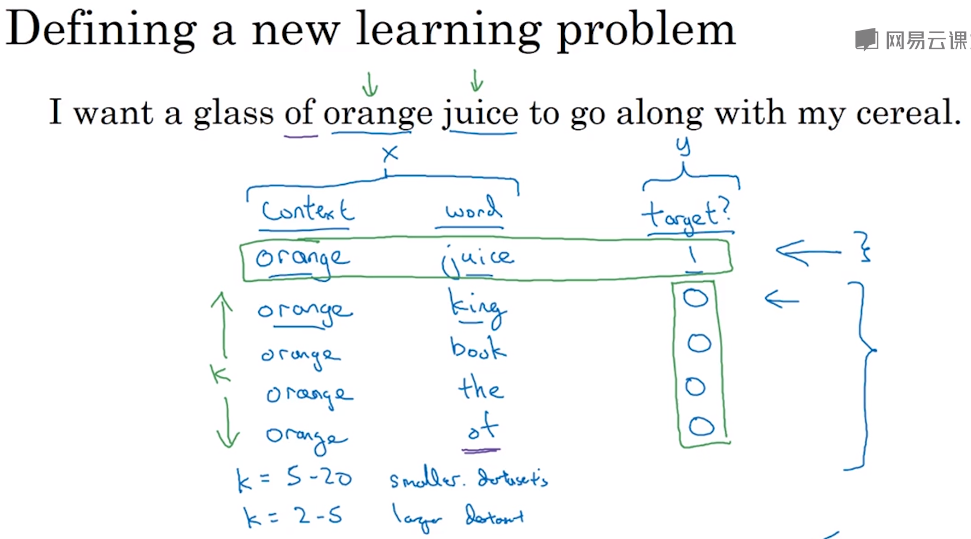 Defining a new learning problem
网易云课
I want a glass of orange juice to go along with my cereal.
x y
context word target?
orange juice 1
orange king 0
orange book 0
k
orange the 0
orange of 0
k = 5-20 smaller datasets
k = 2-5 larger dataset